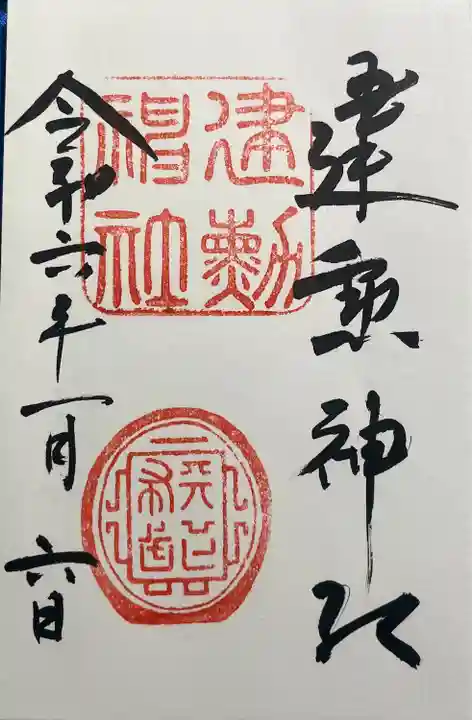 建勲神社
建勲神社
令和六年一月六日